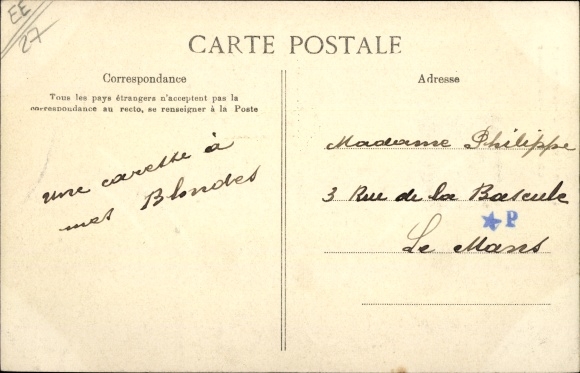 EE
27
CARTE POSTALE
Correspondance
Tous les pays étrangers n'acceptent pas la
correspondance au recto, se renseigner à la Poste
Adresse
une caresse à
mes Blondes
Madame Philippe
3 Rue de la Bascule
★P
Le Mans